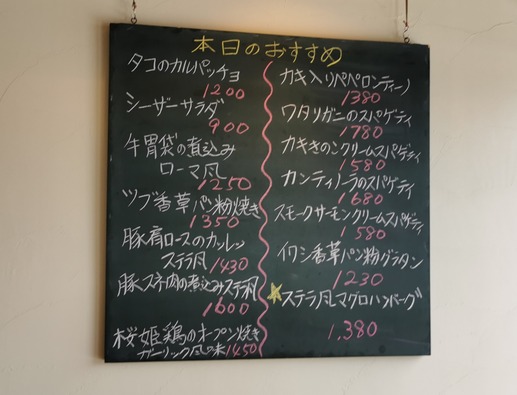 本日のおすすめ
タコのカルパッチョ
1200
シーザーサラダ
900
牛胃袋の煮込み
ローマ風
1250
ツブ香草パン粉焼き
1350
豚肩ロースのカツレツ
ステラ風 1430
豚スネ肉の煮込みステラ風
1600
桜姫鶏のオーブン焼き
ガーリック風味 1450
カキ入りペペロンティーノ
1380
ワタリガニのスパゲティ
1780
カキきのこクリームスパゲティ
1580
カンティノーラのスパゲティ
1680
スモークサーモンクリームスパゲティ
1580
イワシ香草パン粉グラタン
1230
ステラ風マグロハンバーグ
1,380